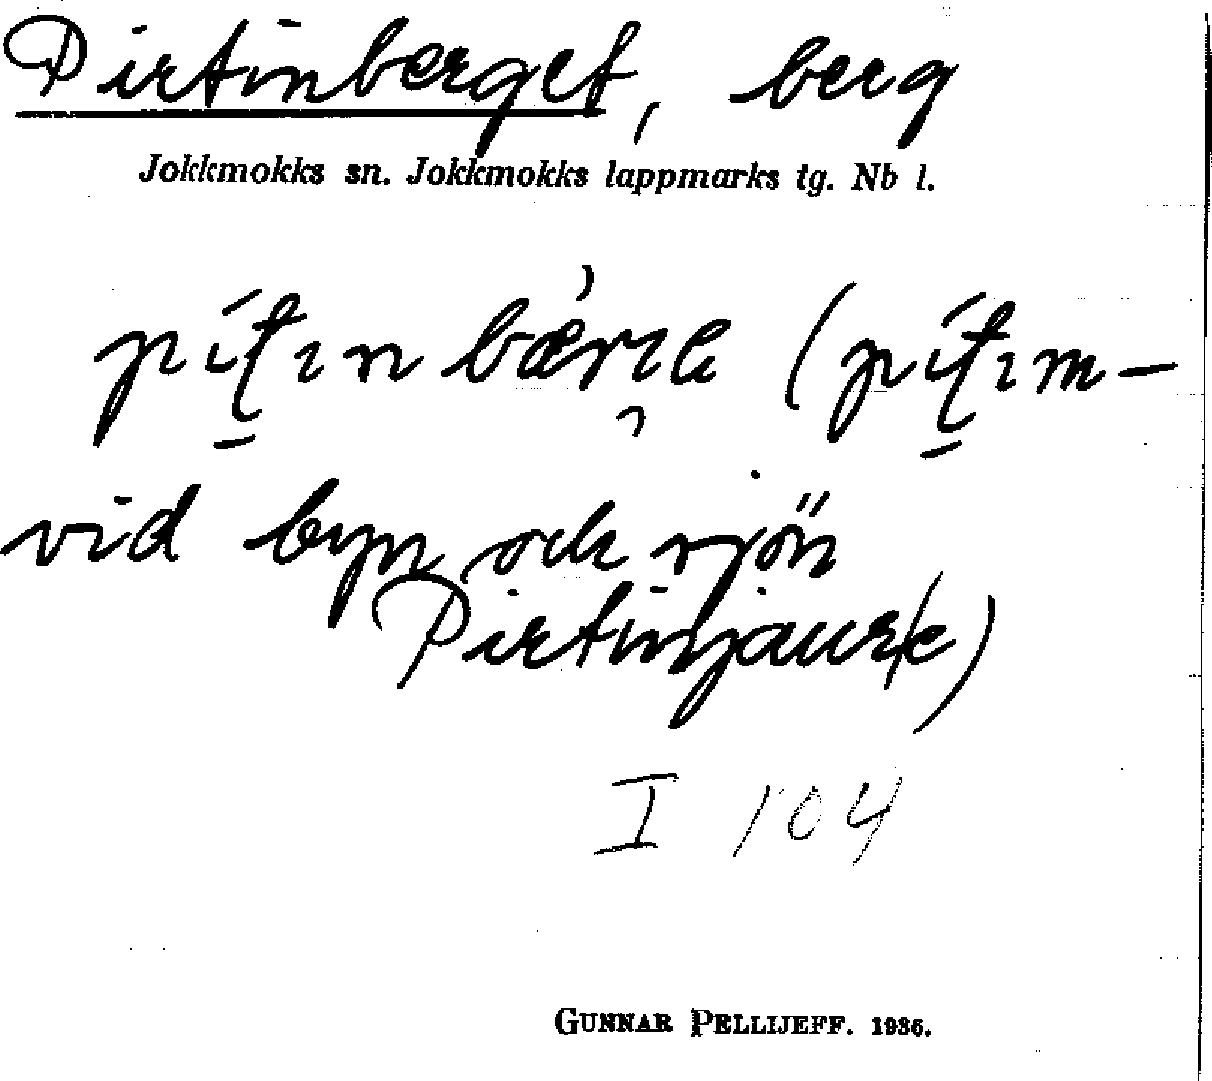 Pirtinberget, berg
Jokkmokks sn. Jokkmokks lappmarks tg. Nb l.
vid byn och sjön
Pirtinjaur(e)
I 104
GUNNAR PELLIJEFF. 1936.